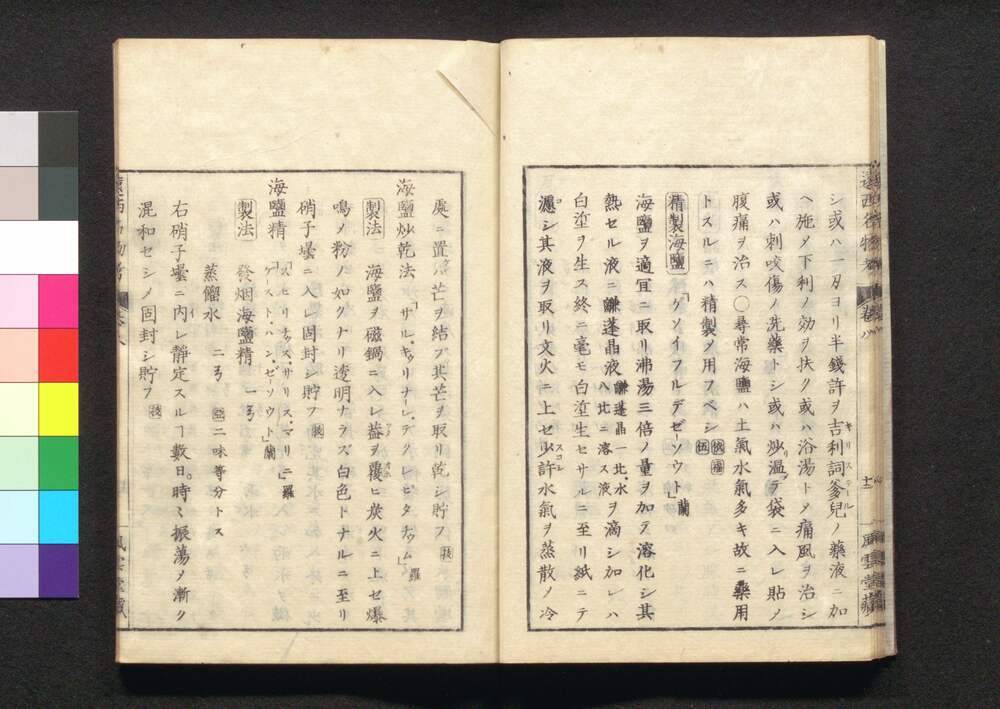 シ或ハ一刄ヨリ半錢許ヲ吉利詞爹兒ノ藥液ニ加
キリステール
ヘ施メ下利ノ効ヲ扶ク或ハ浴湯トメ痛風ヲ治シ
或ハ刺咬傷ノ洗藥トシ或ハ炒温メテ袋ニ入レ貼ノ
腹痛ヲ治ス〇尋常海鹽ハ土氣水氣多キ故ニ藥用
トスルニハ精製メ用フベシ
精製海鹽「ゲソイフルデゼーソウト」蘭
海鹽ヲ適宜ニ取リ沸湯三倍ノ量ヲ加テ溶化シ其
熱セル液ニ鹻蓬晶液鹻蓬晶一比水八比ニ溶ス液ヲ滴シ加レハ
白塗ヲ生ス終ニ毫モ白塗生セサルニ至リ紙ニテ
濾シ其液ヲ取リ文火ニ上セ少許水氣ヲ蒸散ノ冷
スコシ
風雲堂藏
處ニ置ハ芒ヲ結フ其芒ヲ取リ乾シ貯フ
海鹽炒乾法「サル、キリナレ、デクレピタチュム」羅
製法 海鹽ヲ磁鍋ニ入レ葢ヲ覆ヒ炭火ニ上セ爆
鳴メ粉ノ如クナリ透明ナラズ白色トナルニ至リ
硝子壜ニ入レ固封シ貯フ
海鹽精「スピリチュス、サリス、マリニ」羅
「ゲースト、ハン、ゼーソウト」蘭
製法 發烟海鹽精 一弓
蒸餾水 二弓 二味等分トス
右硝子壜ニ内レ靜定スルー數日。時々振蕩メ漸ク
混和セシメ固封シ貯フ